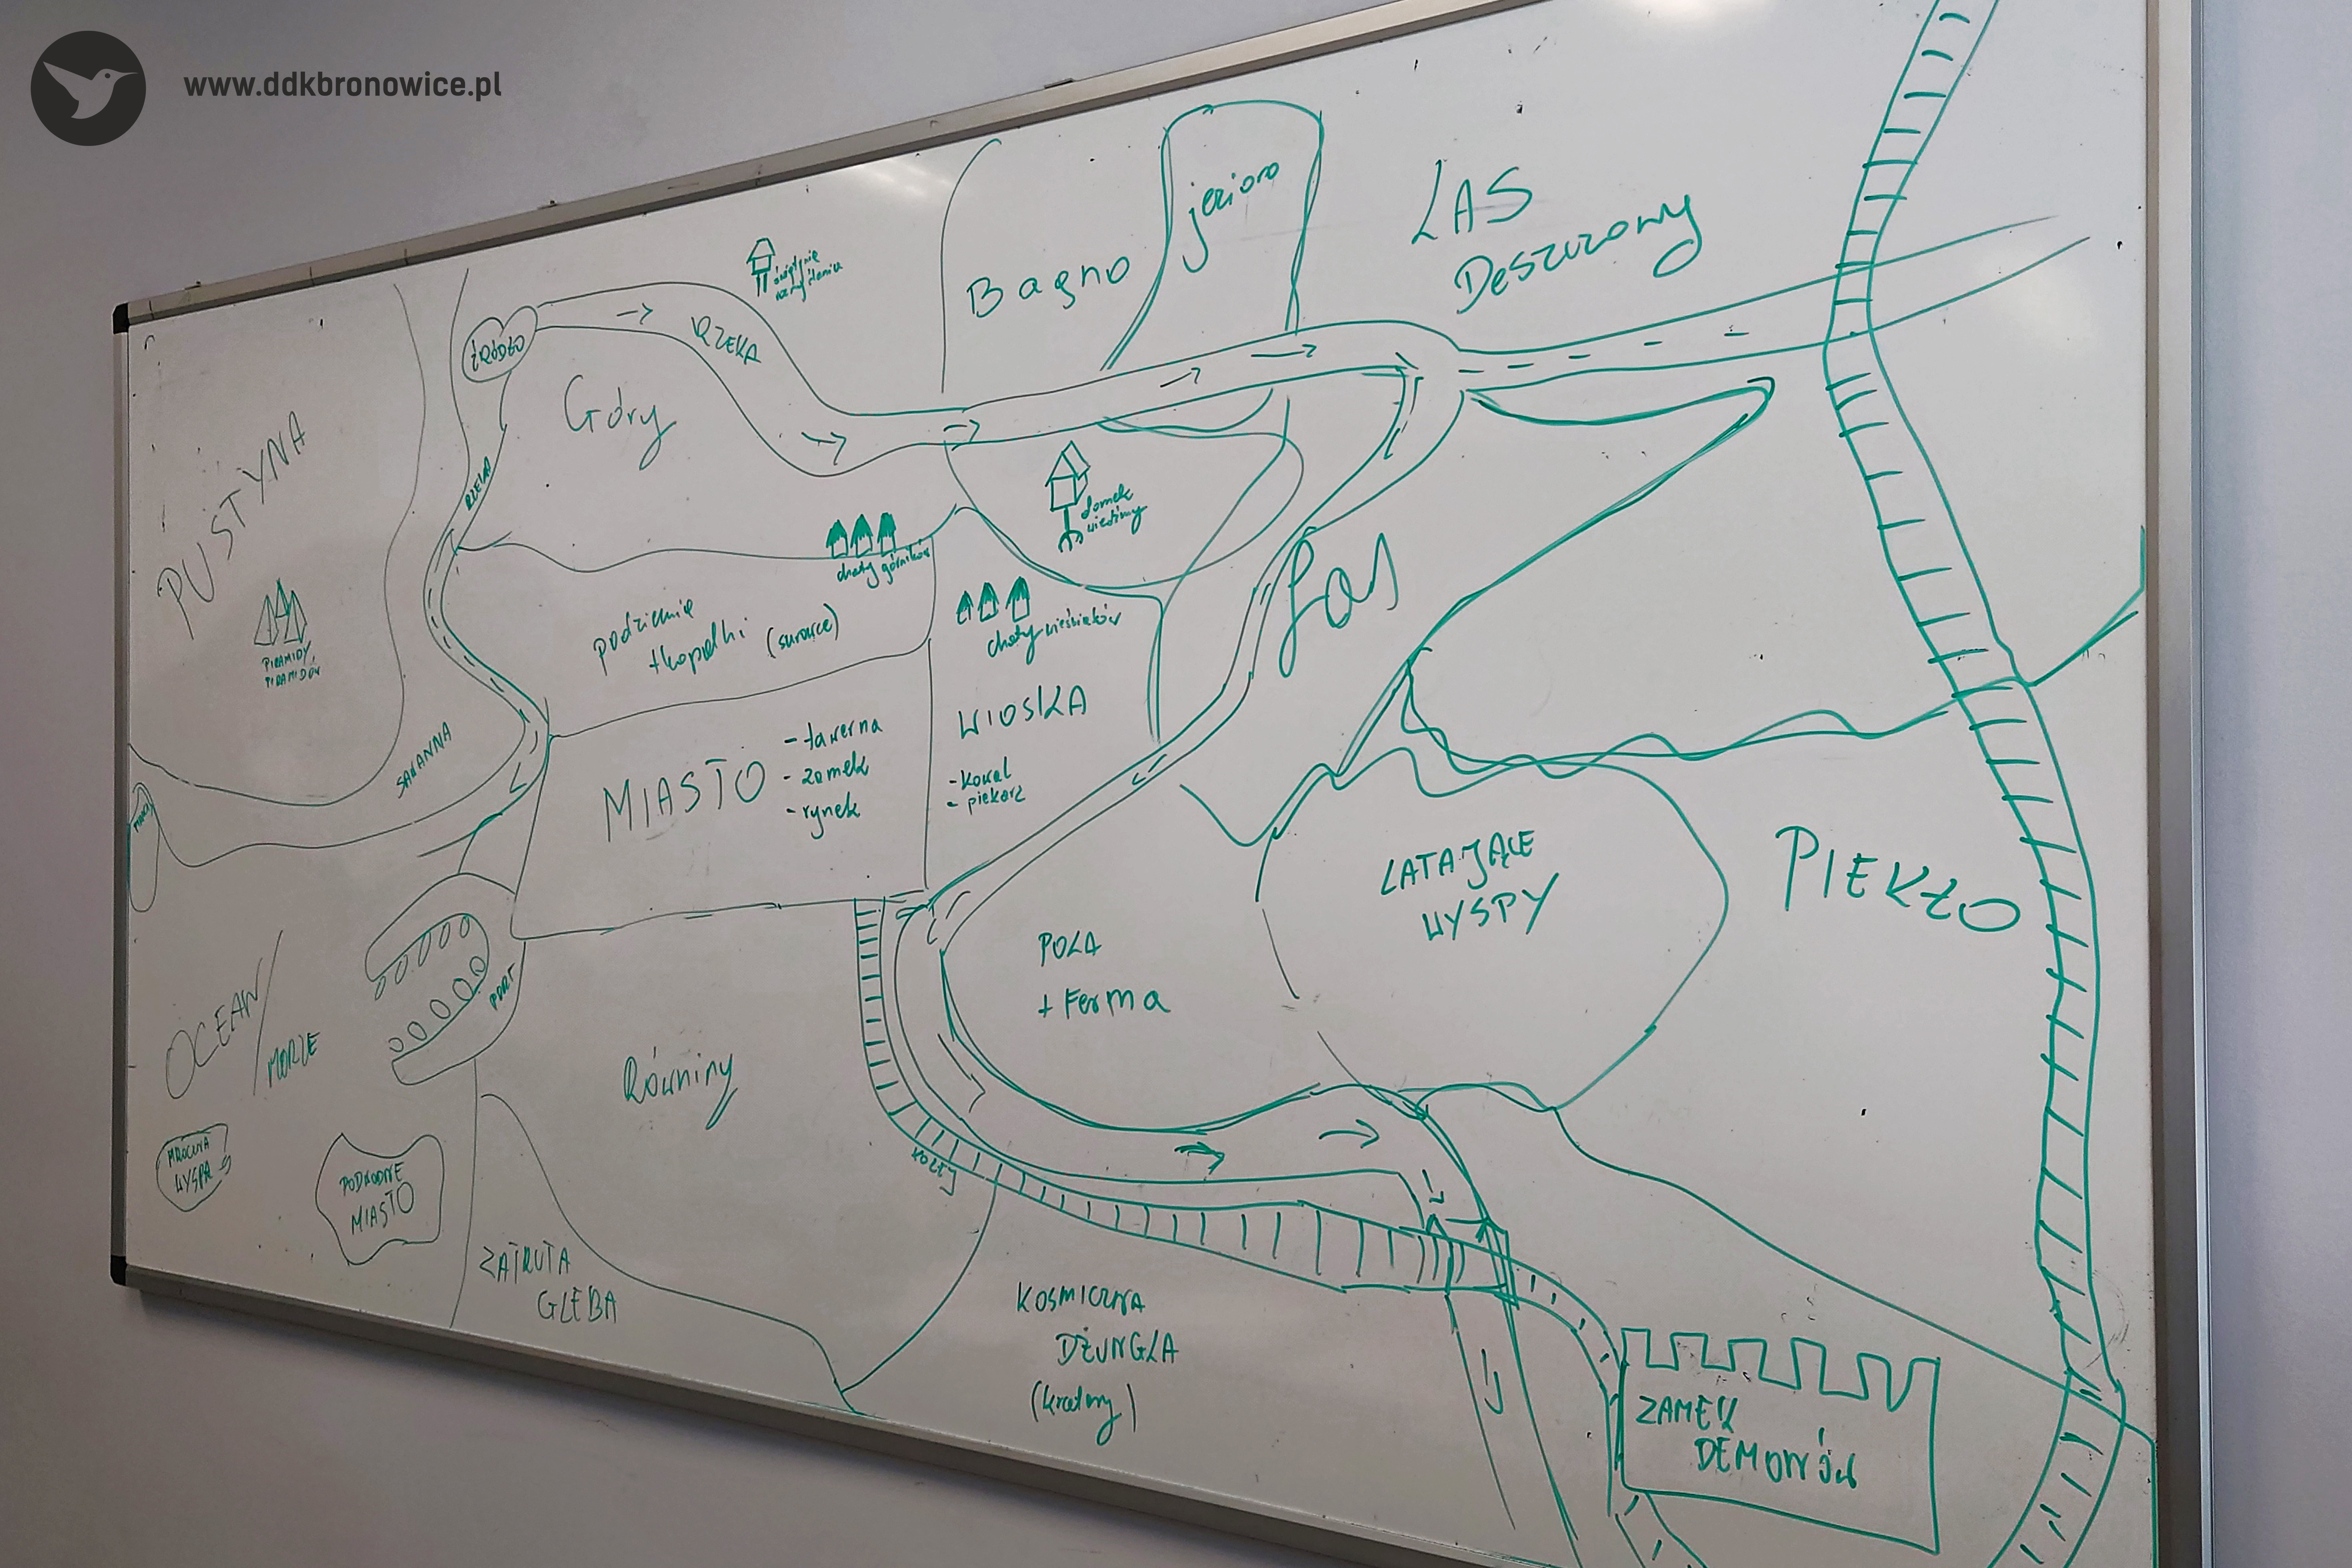 www.ddkbronowice.pl
jezioro
LAS
Deszczowy
Bagno
ŹRÓDŁO
RZEKA
Góry
RZEKA
PUSTYNA
domek
wiedźmy
chaty górników
PIRAMIDY
PIRAMIDÓW
podziemie
+kopalki (surowce)
chaty wieśniaków
Las
SAWANNA
MIASTO
- tawerna
- zamek
- rynek
WIOSKA
- kowal
- piekarz
LATAJĄCE
WYSPY
PIEKŁO
POLA
+ Ferma
PORT
OCEAN/
MORZE
Równiny
MROCZNA
WYSPA
PODWODNE
MIASTO
ZATRUTA
GLEBA
KOSMICZNA
DŻUNGLA
ZAMEK
DEMONÓW